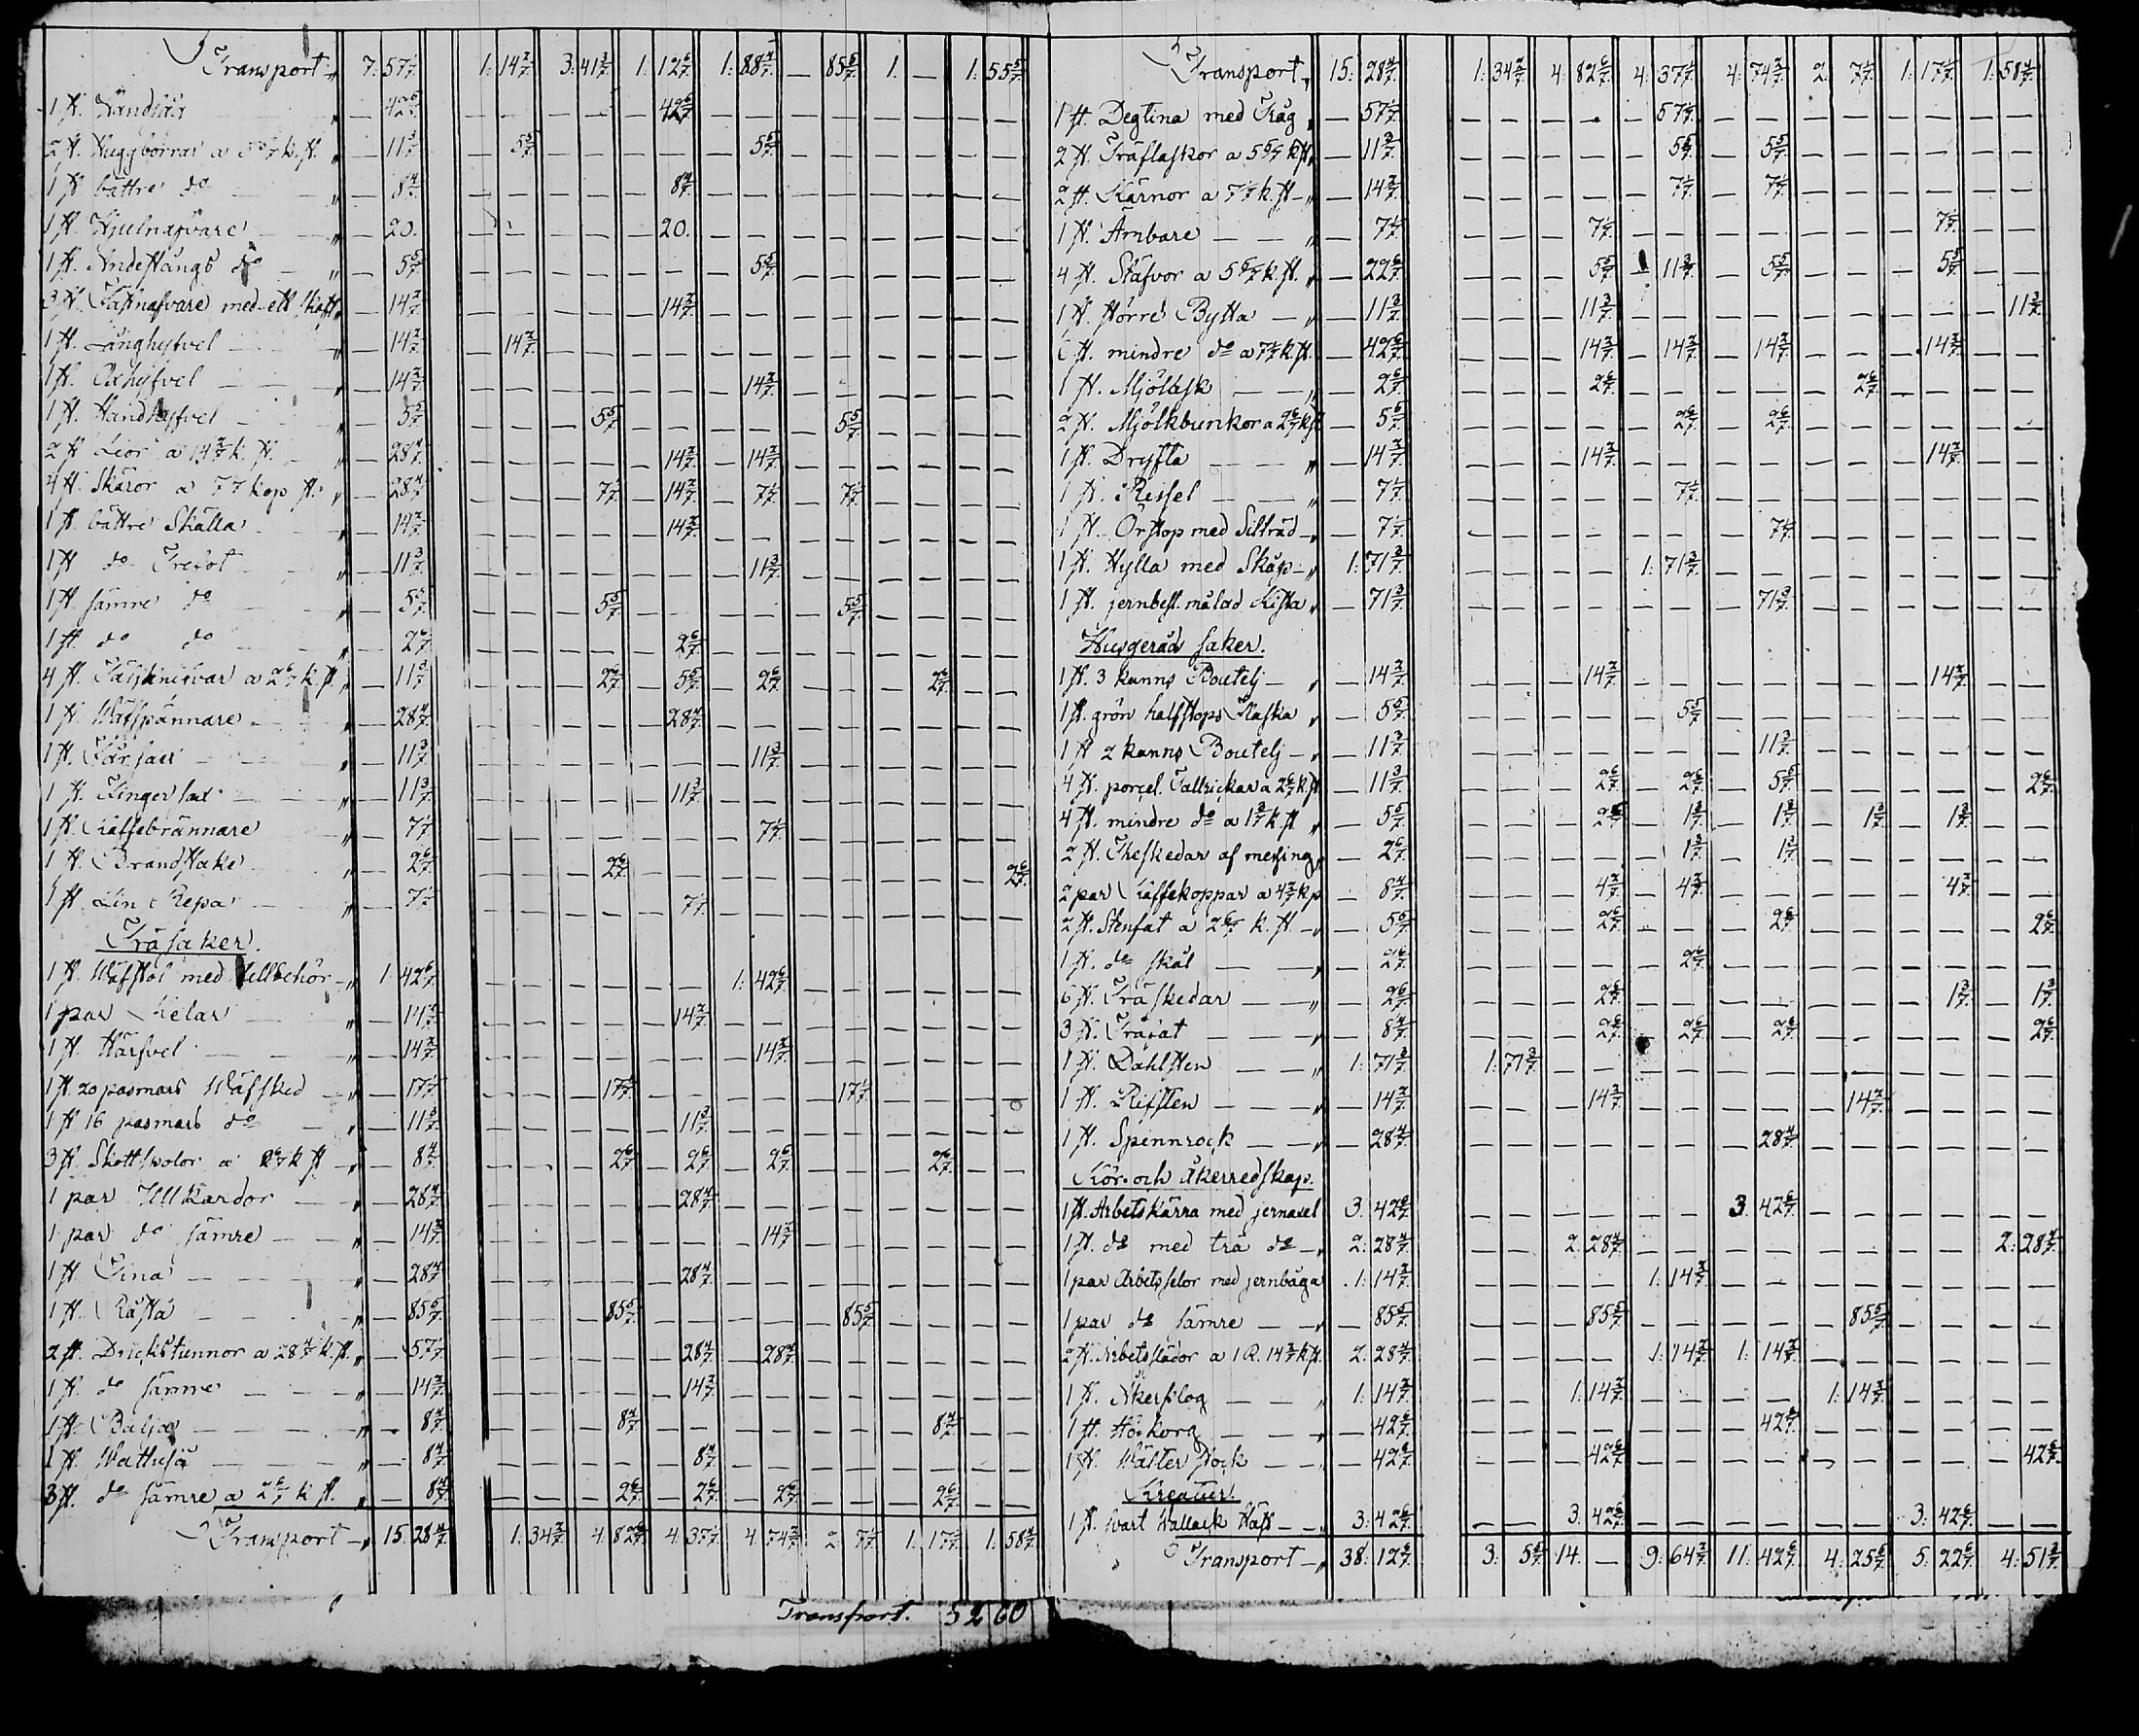 Transport „ 7: 57 1/7. 1: 14 2/7. 3: 41 3/7. 1: 12 6/7. 1: 88 4/7. — 85 5/7. 1: — 1: 55 5/7.
1 st. — 42 6/7. — 42 6/7.
2 st. Huggborrar a 5 5/7 k. st. „ — 11 3/7. — 5 5/7. — 5 5/7.
1 st bättre do „ — 8 4/7. — 8 4/7.
1 st. Hjulnafvare „ — 20. — 20.
1 st. do „ — 5 5/7. — 5 5/7.
3 st. nafvare med ett skaft „ — 14 2/7. — 14 2/7.
1 st. Långhyfvel „ — 14 2/7. — 14 2/7.
1 st. Oxhyfvel „ — 14 2/7. — 14 2/7.
1 st. Handhyfvel — 5 5/7. — 5 5/7. — 5 5/7.
2 st Lior a 14 2/7 k. st. „ — 28 4/7. — 14 2/7. — 14 2/7.
4 st. Skäror a 7 1/7 kop st. „ — 28 4/7. — 7 1/7. — 14 2/7. — 7 1/7. — 7 1/7.
1 st. bättre Skälla „ — 14 2/7. — 14 2/7.
1 st do Trefot „ — 11 3/7. — 11 3/7.
1 st. sämre do „ — 5 5/7. — 5 5/7. — 5 5/7.
1 st do do „ — 2 6/7. — 2 6/7.
4 st. Täljknifvar a 2 6/7 k. st. „ — 11 3/7. — 2 6/7. — 5 5/7. — 2 6/7. — 2 6/7.
1 st. Wäfspännare „ — 28 4/7. — 28 4/7.
1 st. Fårsax „ — 11 3/7. — 11 3/7.
1 st. Fingersax „ — 11 3/7. — 11 3/7.
1 st. Kaffebrännare „ — 7 1/7. — 7 1/7.
1 st. Brandstake „ — 2 6/7. — 2 6/7. — 2 6/7.
1 st Lin Repa „ — 7 1/7. — 7 1/7.
Träsaker.
1 st. Wäfstol med tillbehör „ 1: 42 6/7. 1: 42 6/7.
1 par „ — 14 2/7. — 14 2/7.
1 st. Härfvel „ — 14 2/7. — 14 2/7.
1 st. 20 pasmars Wäfsked „ — 17 1/7. — 17 1/7. — 17 1/7.
1 st 16 pasmars do „ — 11 3/7. — 11 3/7.
3 st. Skottspolor a 2 6/7 k st „ — 8 4/7. — 2 6/7. — 2 6/7. — 2 6/7. — 2 6/7.
1 par Ullkardor „ — 28 4/7. — 28 4/7.
1 par do sämre „ — 14 2/7. — 14 2/7.
1 st. Tina „ — 28 4/7. — 28 4/7.
1 st. Kista „ — 85 5/7. — 85 5/7. — 85 5/7.
2 st. Drickstunnor a 28 4/7 k. st. „ — 57 1/7. — 28 4/7. — 28 4/7.
1 st. do sämre „ — 14 2/7. — 14 2/7.
1 st. Balja „ — 8 4/7. — 8 4/7. — 8 4/7.
1 st. Wattuså „ — 8 4/7. — 8 4/7.
3 st. do sämre a 2 6/7 k st. „ — 8 4/7. — 2 6/7. — 2 6/7. — 2 6/7. — 2 6/7.
Transport „ 15: 28 4/7. 1: 34 2/7. 4: 82 6/7. 4: 37 1/7. 4: 74 2/7. 2: 7 1/7. 1: 17 1/7. 1: 58 4/7.
Transport. 52 60
Transport „ 15: 28 4/7. 1: 34 2/7. 4: 82 6/7. 4: 37 1/7. 4: 74 2/7. 2: 7 1/7. 1: 17 1/7. 1: 58 4/7.
1 st. Degtina med Tråg „ — 57 1/7. — 57 1/7.
2 st. Träflaskor a 5 5/7 k st. — 11 3/7. — 5 5/7. — 5 5/7.
2 st. Kärnor a 7 1/7 k. st „ — 14 2/7. — 7 1/7. — 7 1/7.
1 st. Ämbare „ — 7 1/7. — 7 1/7. — 7 1/7.
4 st. Stäfvor a 5 5/7 k. st. „ — 22 6/7. — 5 5/7. — 11 3/7. — 5 5/7. — 5 5/7.
1 st. större Bytta „ — 11 3/7. — 11 3/7. — 11 3/7.
6 st. mindre do a 7 1/7 k. st. — 42 6/7. — 14 2/7. — 14 2/7. — 14 2/7. — 14 2/7.
1 st. Mjölask „ — 2 6/7. — 2 6/7. — 2 6/7.
2 st. Mjölkbunkor a 2 6/7 k st — 5 5/7. — 2 6/7. — 2 6/7.
1 st. Dryfta „ — 14 2/7. — 14 2/7. — 14 2/7.
1 st. Ressel „ — 7 1/7. — 7 1/7.
1 st. Örstop med Siltråd „ — 7 1/7. — 7 1/7.
1 st. Hylla med Skåp „ 1: 71 3/7. 1: 71 3/7.
1 st. jernbesl. målad Kista „ — 71 3/7. — 71 3/7.
Husgeråds saker.
1 st. 3 kanns Boutelj „ — 14 2/7. — 14 2/7. — 14 2/7.
1 st. grön halfstops Flaska „ — 5 5/7. — 5 5/7.
1 st 2 kanns Boutelj „ — 11 3/7. — 11 3/7.
4 st. porcel. Tallrickar a 2 6/7 k. st — 11 3/7. — 2 6/7. — 2 6/7. — 5 5/7. — 2 6/7.
4 st. mindre do a 1 3/7 k. st „ — 5 5/7. — 2 6/7. — 1 3/7. — 1 3/7. — 1 3/7. — 1 3/7.
2 st. Theskedar af mesing „ — 2 6/7. — 1 3/7. — 1 3/7.
2 par Kaffekoppar a 4 2/7 k p — 8 4/7. — 4 2/7. — 4 2/7. — 4 2/7.
2 st. Stenfat a 2 6/7 k. st. „ — 5 5/7. — 2 6/7. — 2 6/7. — 2 6/7.
1 st. do skål „ — 2 6/7. — 2 6/7.
6 st. Träskedar „ — 2 6/7. — 2 6/7. — 1 3/7. — 1 3/7.
3 st. Träfat „ — 8 4/7. — 2 6/7. — 2 6/7. — 2 6/7. — 2 6/7.
1 st. Dahlsten „ 1: 71 3/7. 1: 71 3/7.
1 st. Rifsten „ — 14 2/7. — 14 2/7. — 14 2/7.
1 st. Spinnrock „ — 28 4/7. — 28 4/7.
Kör- och Åkerredskap.
1 st. Arbetskärra med jernaxel 3: 42 6/7. 3: 42 6/7.
1 st. do med trä do „ 2: 28 4/7. 2: 28 4/7. 2: 28 4/7.
1 par Arbetsselor med jernbåga 1: 14 2/7. 1: 14 2/7.
1 par do sämre „ — 85 5/7. — 85 5/7. — 85 5/7.
2 st. Arbetsslädor a 1 R. 14 2/7 k st. 2: 28 4/7. 1: 14 2/7. 1: 14 2/7.
1 st. Åkerplog „ 1: 14 2/7. 1: 14 2/7. 1: 14 2/7.
1 st Hökorg „ — 42 6/7. — 42 6/7.
1 st. Wälterstock — 42 6/7. — 42 6/7. — 42 6/7.
Kreatur.
1 st. svart Wallack Häst 3: 42 6/7. 3: 42 6/7. 3: 42 6/7.
Transport „ 38: 12 6/7. 3: 5 5/7. 14: — 9: 64 2/7. 11: 42 6/7. 4: 25 5/7. 5: 22 6/7. 4: 51 3/7.